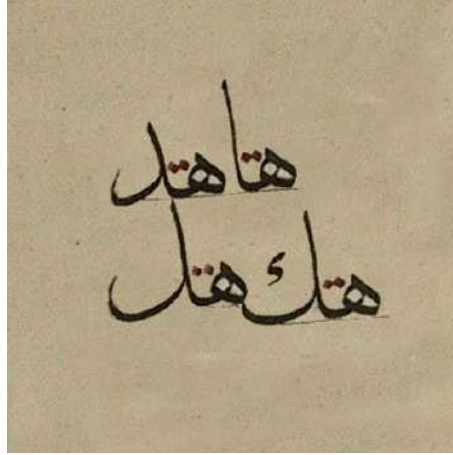 ها هد
هك هل